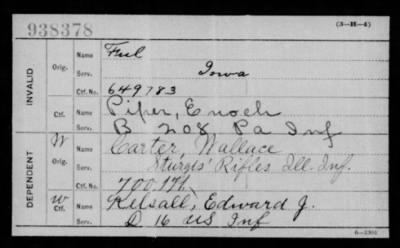 938378
(3-H-4)
INVALID
Orig.
Name
Serv.
Iowa
Ctf. No.
649783
Ctf.
Name
Piper, Enoch
Serv.
B 208 Pa Inf
DEPENDENT
W
Orig.
Name
Carter, Wallace
Serv.
Sturgis' Rifles Ill. Inf.
Ctf. No.
W
Ctf.
Name
Kelsall, Edward J.
Serv.
D 16 US Inf